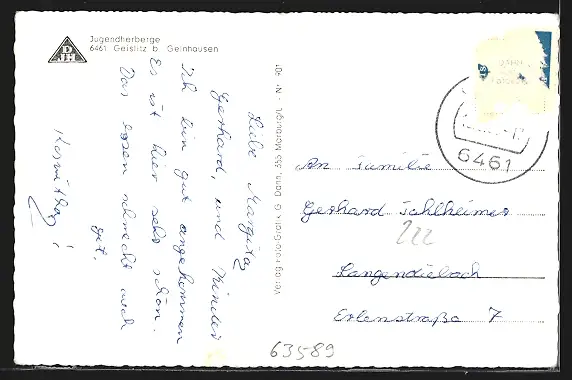 DJH
Jugendherberge
6461 Geislitz b. Gelnhausen
Liebe Margitta
Gerhard, und Kinder
Ich bin gut angekommen
Es ist hier sehr schön.
Das essen schmeckt auch
gut.
Verlag Foto-Gdr. G. Dahn, 355 Marburg/L.
6461
An Familie
Gerhard
222
Langendiebach
Erlenstraße 7
63589